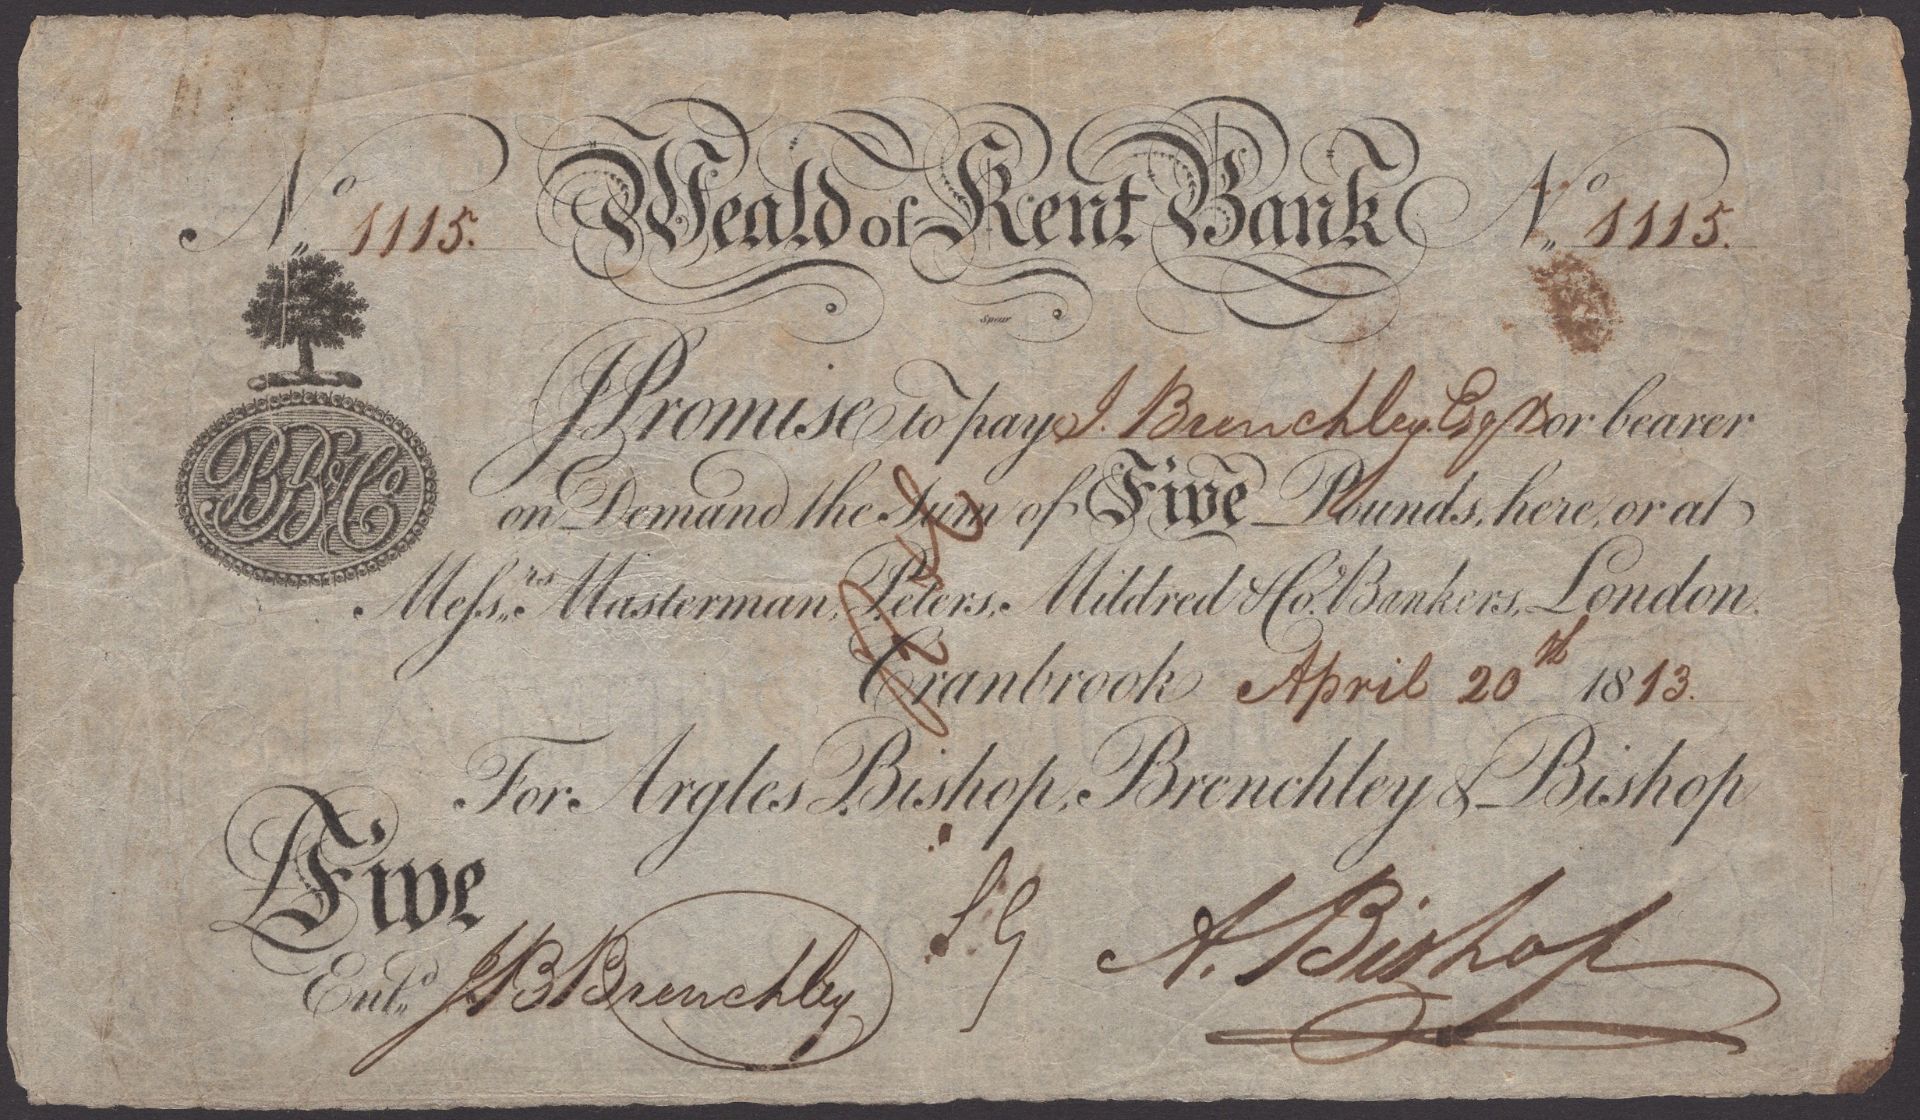 No. 1115. Weald of Kent Bank No. 1115.
Spear
BB&Co
I Promise to pay J. Brenchley Esqr or bearer
on Demand the Sum of Five Pounds, here, or at
Messrs. Masterman, Peters, Mildred & Co. Bankers, London.
Cranbrook April 20th 1813.
For Argles Bishop, Brenchley & Bishop
Five
Entd. J B Brenchley A. Bishop